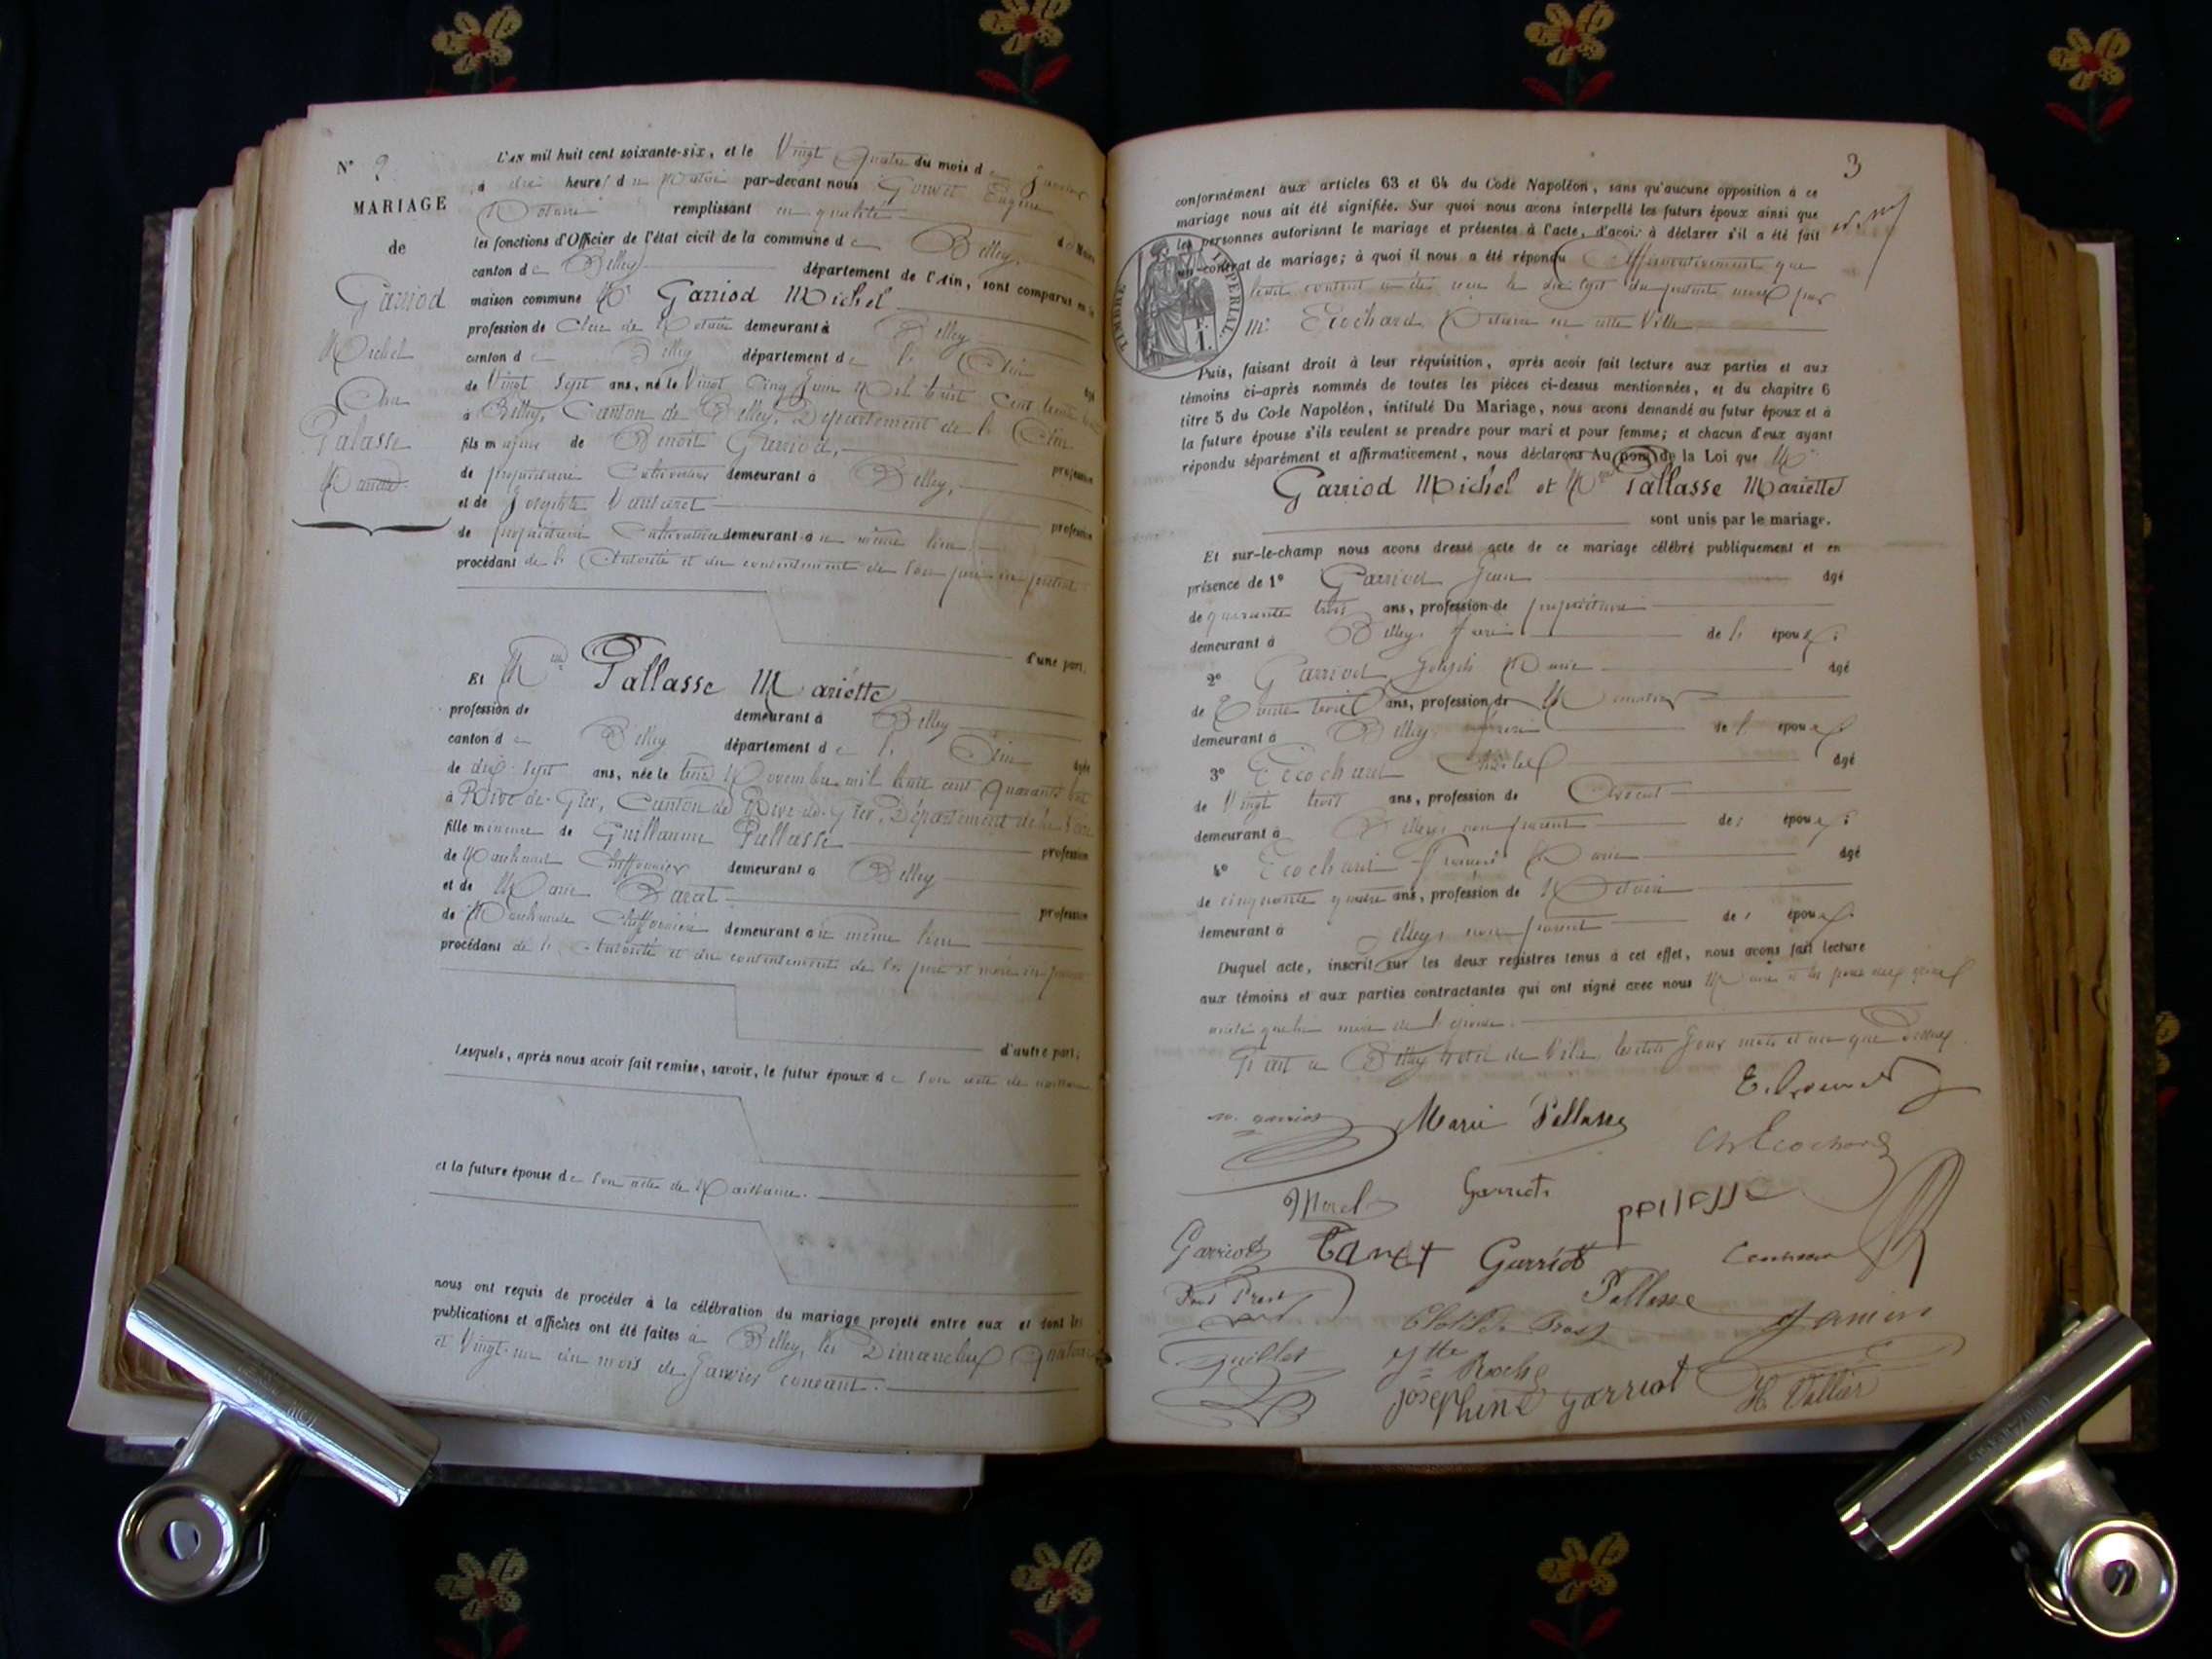 N° 2
MARIAGE
de
Garriod
Michel
Palasse
L'an mil huit cent soixante-six, et le Vingt Quatre du mois de Janvier
à dix heures du Matin par-devant nous Gouvet Eugène
Notaire remplissant en qualité de Maire
les fonctions d'Officier de l'état civil de la commune de Belley,
canton de Belley département de l'Ain, sont comparus en la
maison commune Mr Garriod Michel
profession de Clerc de Notaire demeurant à Belley
canton de Belley département de l' Ain âgé
de Vingt Sept ans, né le Vingt Cinq Juin Mil huit Cent trente
à Belley, Canton de Belley, Département de l' Ain
fils majeur de Benoit Garriod, profession
de propriétaire Cultivateur demeurant à Belley,
et de Josephte profession
de propriétaire Cultivatrice demeurant au même lieu
procédant de l' Autorité et du consentement de son père ici présent
d'une part.
Et Mlle Pallasse Mariette
profession de demeurant à Belley
canton de Belley département de l' Ain âgée
de dix-sept ans, née le trois Novembre mil huit cent quarante huit
à Rive-de-Gier, Canton de Rive-de-Gier, Département de la Loire
fille mineure de Guillaume Pallasse profession
de Marchand Chiffonnier demeurant à Belley
et de Marie Barat profession
de Marchande Chiffonnière demeurant au même lieu
procédant de l' Autorité et du consentement de ses père et mère ici présents
d'autre part.
Lesquels, après nous avoir fait remise, savoir, le futur époux de son acte de naissance
et la future épouse de son acte de Naissance.
nous ont requis de procéder à la célébration du mariage projeté entre eux et dont les
publications et affiches ont été faites à Belley, les Dimanches Quatorze
et Vingt-un du mois de Janvier courant.
3
conformément aux articles 63 et 64 du Code Napoléon, sans qu'aucune opposition à ce
mariage nous ait été signifiée. Sur quoi nous avons interpellé les futurs époux ainsi que
les personnes autorisant le mariage et présentes à l'acte, d'avoir à déclarer s'il a été fait
un contrat de mariage; à quoi il nous a été répondu Affirmativement que
ledit contrat a été reçu le dix sept du présent mois par
Me Ecochard Notaire en cette Ville
TIMBRE IMPERIAL
F.
1.
Puis, faisant droit à leur réquisition, après avoir fait lecture aux parties et aux
témoins ci-après nommés de toutes les pièces ci-dessus mentionnées, et du chapitre 6
titre 5 du Code Napoléon, intitulé Du Mariage, nous avons demandé au futur époux et à
la future épouse s'ils veulent se prendre pour mari et pour femme; et chacun d'eux ayant
répondu séparément et affirmativement, nous déclarons Au nom de la Loi que Mr
Garriod Michel et Mlle Pallasse Mariette
sont unis par le mariage.
Et sur-le-champ nous avons dressé acte de ce mariage célébré publiquement et en
présence de 1° Garriod Jean âgé
de quarante trois ans, profession de propriétaire
demeurant à Belley, de l' époux;
2° Garriod Joseph Marie âgé
de Trente trois ans, profession de Menuisier
demeurant à Belley de l' époux;
3° Ecochard Charles âgé
de Vingt trois ans, profession de Avocat
demeurant à Belley, non parent des époux;
4° Ecochard François Marie âgé
de cinquante quatre ans, profession de Notaire
demeurant à Belley, non parent des époux.
Duquel acte, inscrit sur les deux registres tenus à cet effet, nous avons fait lecture
aux témoins et aux parties contractantes qui ont signé avec nous
que la mère de l'épouse.
Fait à Belley hôtel de Ville, lesdits Jour mois et an que Dessus
E. Gouvet
m. garriod
Marie Pallasse
Ch Ecochard
Morel
Garriod
pallasse
Garriod
Garriod
Pallasse
Janin
Clotilde Prost
Guillot
Roche
Josephine garriot